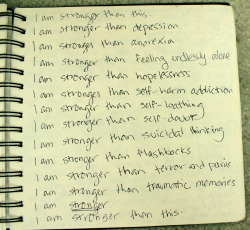 I am stronger than this.
I am stronger than depression
I am stronger than anorexia
I am stronger than feeling endlessly alone
I am stronger than hopelessness
I am stronger than self-harm addiction
I am stronger than self-loathing
I am stronger than self-doubt
I am stronger than suicidal thinking
I am stronger than flashbacks
I am stronger than terror and panic
I am stronger than traumatic memories
I am stronger.
I am stronger than this.